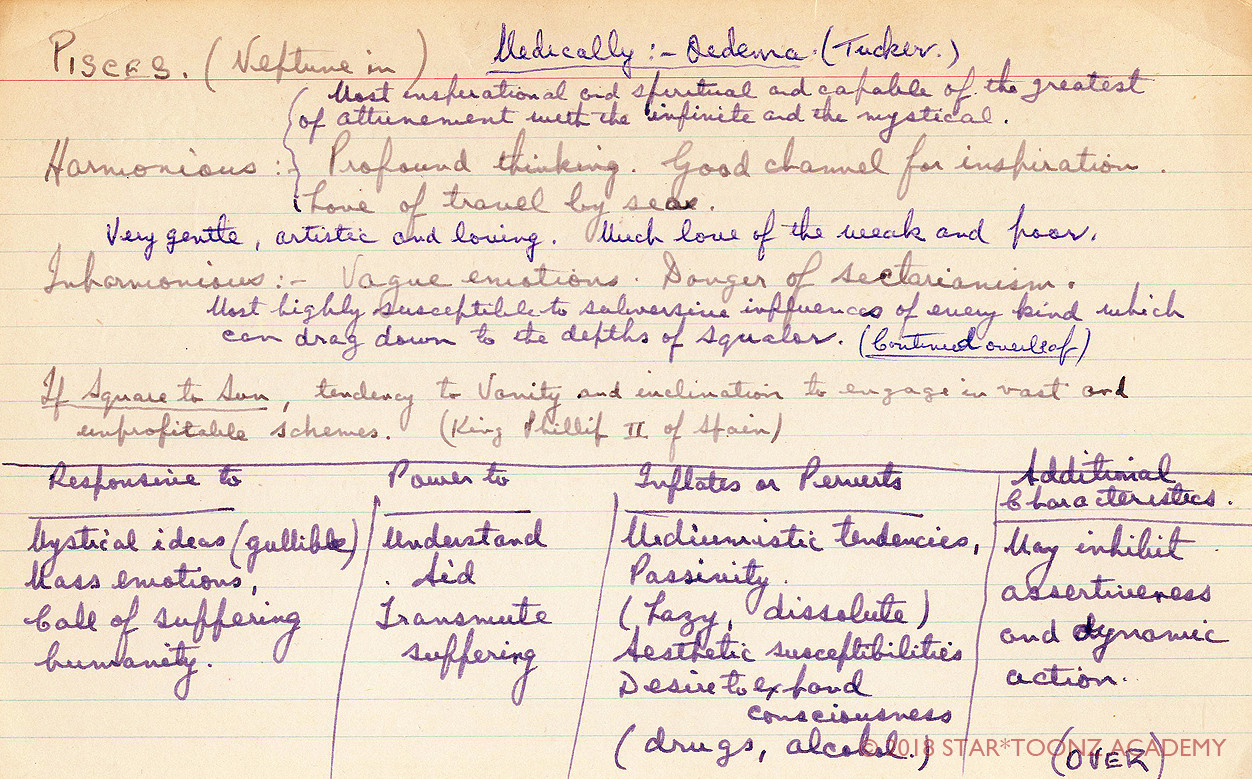 PISCES. (Neptune in) Medically :- Oedema. (Tucker.)
Most inspirational and spiritual and capable of the greatest
of attunement with the infinite and the mystical.
Harmonious :- Profound thinking. Good channel for inspiration.
Love of travel by sea.
Very gentle, artistic and loving. Much love of the weak and poor.
Inharmonious :- Vague emotions. Danger of sectarianism.
Most highly susceptible to subversive influences of every kind which
can drag down to the depths of squalor. (Continued overleaf)
If Square to Sun, tendency to Vanity and inclination to engage in vast and
unprofitable schemes. (King Phillip II of Spain)
Responsive to
Mystical ideas (gullible)
Mass emotions,
Call of suffering
humanity.
Power to
Understand
Aid
Transmute
suffering
Inflates or Perverts
Mediumistic tendencies,
Passivity.
(Lazy, dissolute)
Aesthetic susceptibilities
Desire to expand
consciousness
(drugs, alcohol.)
Additional
Characteristics.
May inhibit
assertiveness
and dynamic
action.
(OVER)
© 2018 STAR*TOONZ ACADEMY